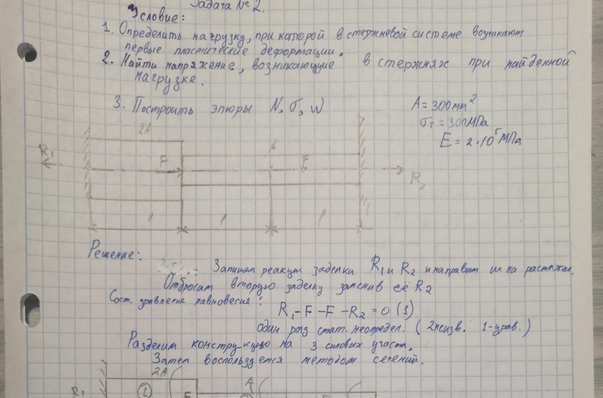 Задача № 2.
Условие:
1. Определить нагрузку, при которой в стержневой системе возникают
первые пластические деформации.
2. Найти напряжение, возникающие в стержнях при найденной
нагрузке.
3. Построить эпюры N, σ, w
A = 300 мм²
σт = 300 МПа
E = 2·10⁵ МПа
2A
A
R₁
F
F
R₂
l
l
l
Решение:
Запишем реакции заделки R₁ и R₂ и направим их на растяжен.
Отбросим вторую заделку заменив её R₂
Сост. уравнение равновесия:
R₁-F-F-R₂=0 (1)
один раз стат. неопредел. (2неизв. 1-урав.)
Разделим конструкцию на 3 силовых участ.
Затем воспользуемся методом сечений.
2A
R₁
1
F
A